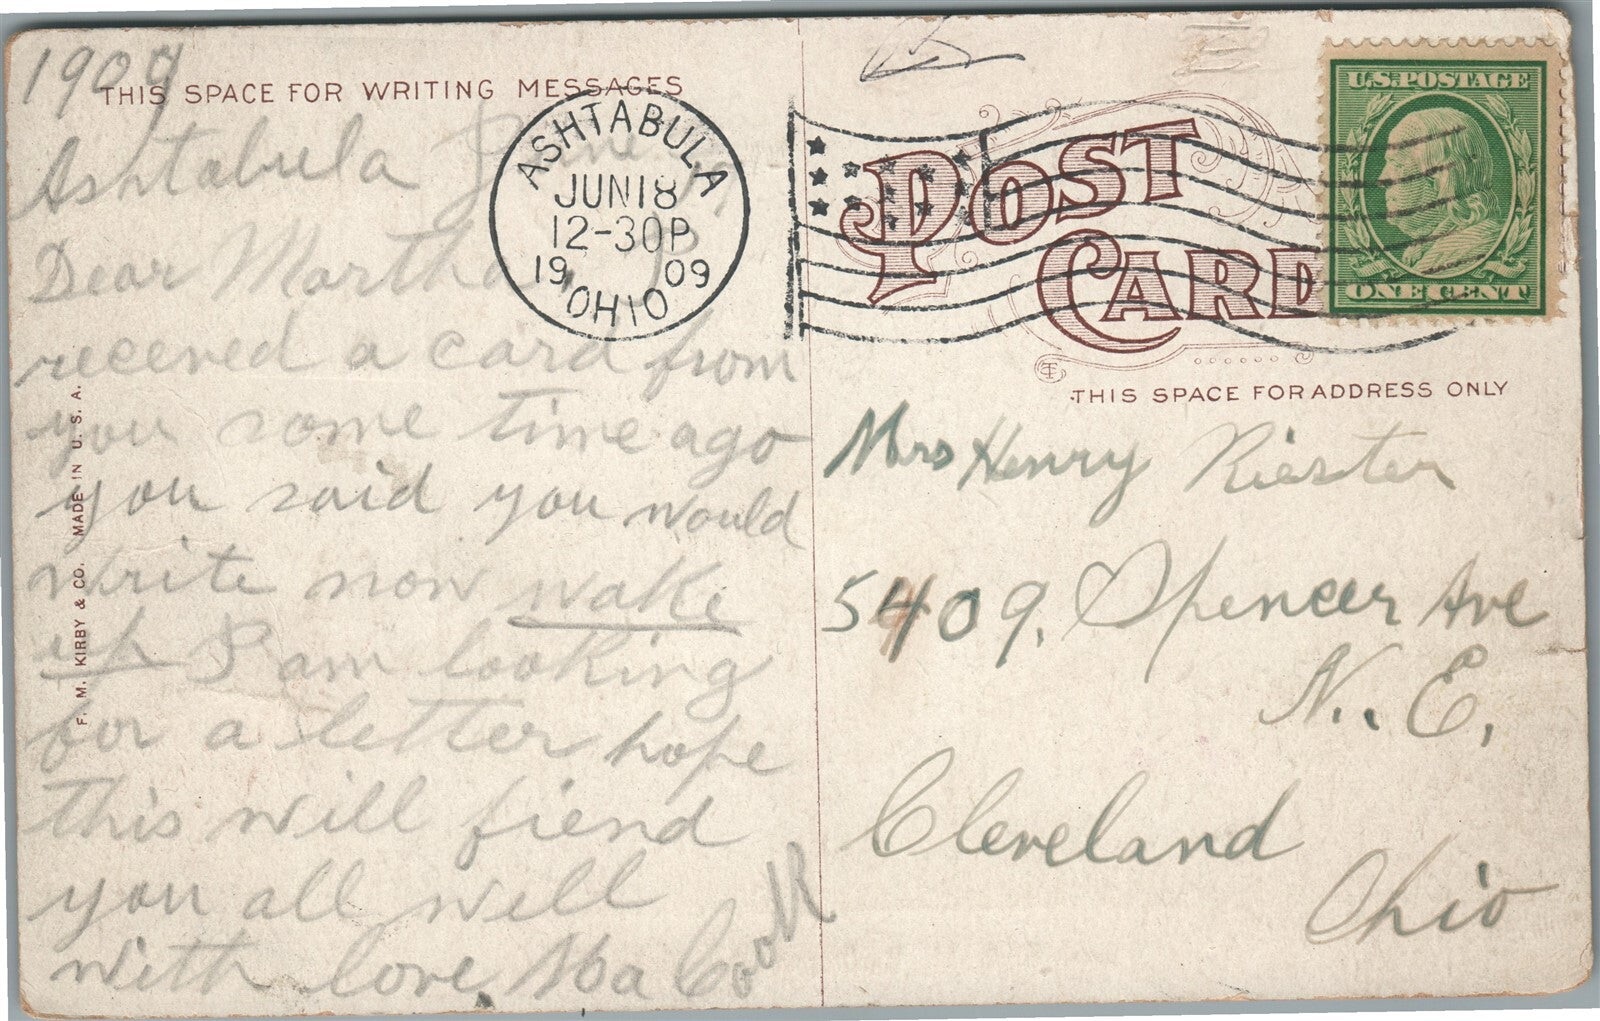 1909
THIS SPACE FOR WRITING MESSAGES
Ashtabula June
Dear Martha I
received a card from
you some time ago
you said you would
write now wake
up I am looking
for a letter hope
this will fiend
you all well
with love, Ma Cook
F. M. KIRBY & CO. MADE IN U. S. A.
ASHTABULA
JUN 18
12-30P
1909
OHIO
POST
CARD
U.S. POSTAGE
ONE CENT
THIS SPACE FOR ADDRESS ONLY
Mrs Henry Riester
5409, Spencer Ave
N.. E.
Cleveland
Ohio